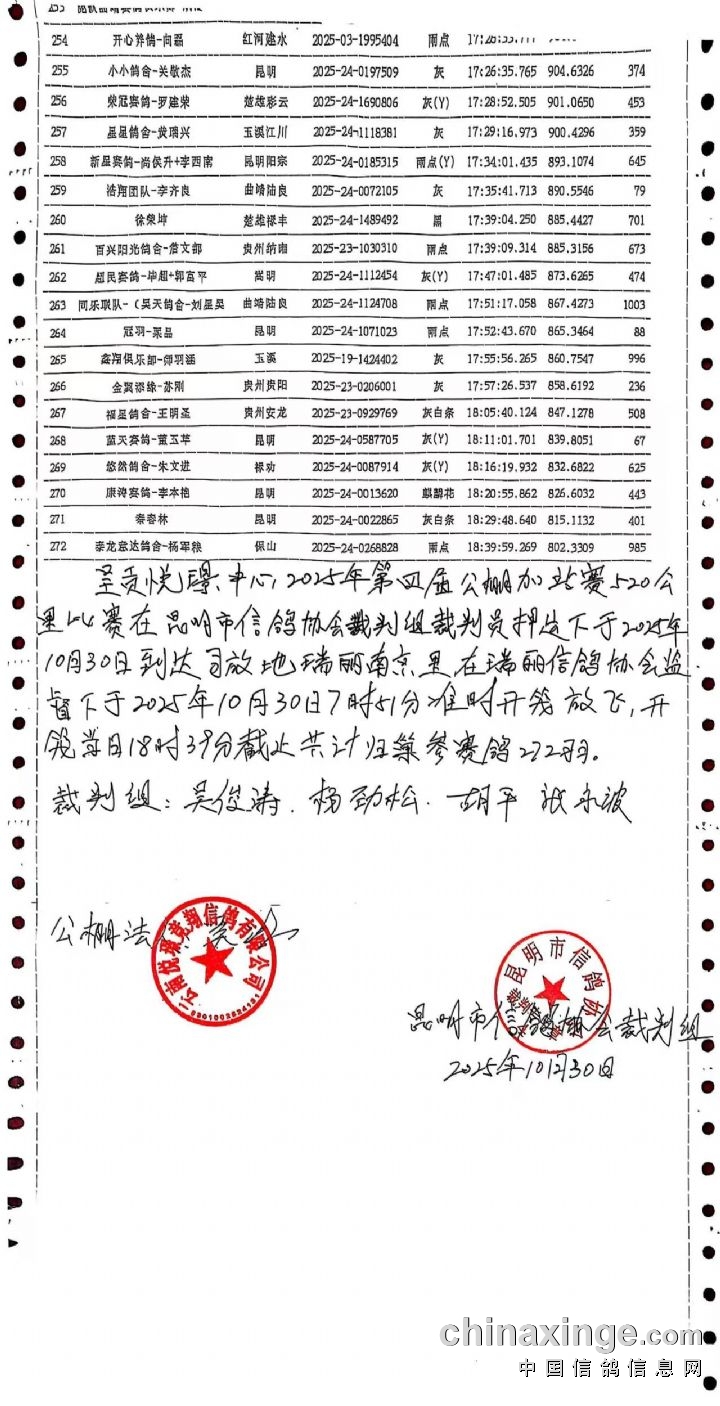 254 开心养鸽-向磊 红河建水 2025-03-1995404 雨点
255 小小鸽舍-关敬杰 昆明 2025-24-0197509 灰 17:26:35.765 904.6326 374
256 荣冠赛鸽-罗建荣 楚雄彩云 2025-24-1690806 灰(Y) 17:28:52.505 901.0650 453
257 星星鸽舍-黄瑞兴 玉溪江川 2025-24-1118381 灰 17:29:16.973 900.4296 359
258 新星赛鸽-尚侯升+李西南 昆明阳宗 2025-24-0185315 雨点(Y) 17:34:01.435 893.1074 645
259 浩翔团队-李齐良 曲靖陆良 2025-24-0072105 灰 17:35:41.713 890.5546 79
260 徐荣坤 楚雄禄丰 2025-24-1489492 黑 17:39:04.250 885.4427 701
261 百兴阳光鸽舍-詹文部 贵州纳雍 2025-23-1030310 雨点 17:39:09.314 885.3156 673
262 超民赛鸽-毕超+郭富平 嵩明 2025-24-1112454 灰(Y) 17:47:01.485 873.6265 474
263 同乐联队-(昊天鸽舍-刘星昊 曲靖陆良 2025-24-1124708 雨点 17:51:17.058 867.4273 1003
264 冠羽-栗品 昆明 2025-24-1071023 雨点 17:52:43.670 865.3464 88
265 鑫翔俱乐部-师羽涵 玉溪 2025-19-1424402 灰 17:55:56.265 860.7547 996
266 金翼添缘-苏刚 贵州贵阳 2025-23-0206001 灰 17:57:26.537 858.6192 236
267 福星鸽舍-王明圣 贵州安龙 2025-23-0929769 灰白条 18:05:40.124 847.1278 508
268 蓝天赛鸽-董玉苹 昆明 2025-24-0587705 灰(Y) 18:11:01.701 839.8051 67
269 悠然鸽舍-朱文进 禄劝 2025-24-0087914 灰(Y) 18:16:19.932 832.6822 625
270 康涛赛鸽-李本艳 昆明 2025-24-0013620 麒麟花 18:20:55.862 826.6032 443
271 秦春林 昆明 2025-24-0022865 灰白条 18:29:48.640 815.1132 401
272 泰龙意达鸽舍-杨军粮 保山 2025-24-0268828 雨点 18:39:59.269 802.3309 985
呈贡悦璟中心,2025年第四届公棚加站赛520公
里比赛在昆明市信鸽协会裁判组裁判员押送下于2025年
10月30日到达司放地瑞丽南京里,在瑞丽信鸽协会监
督下于2025年10月30日7时51分准时开笼放飞,开
笼当日18时39分截止共计归巢参赛鸽272羽。
裁判组:吴俊涛.杨劲松.胡平 张永波
公棚法人:
云南悦璟竞翔信鸽有限公司
昆明市信鸽协会
昆明市信鸽协会裁判组
2025年10月30日
chinaxinge.com
中国信鸽信息网